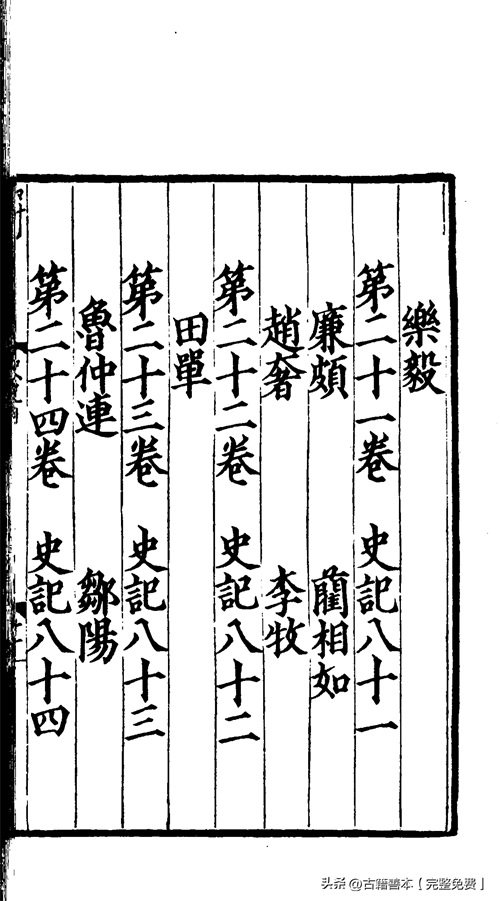 樂毅
第二十一卷 史記八十一
廉頗 藺相如
趙奢 李牧
第二十二卷 史記八十二
田單
第二十三卷 史記八十三
魯仲連 鄒陽
第二十四卷 史記八十四
头条 @古籍善本【完整免费】